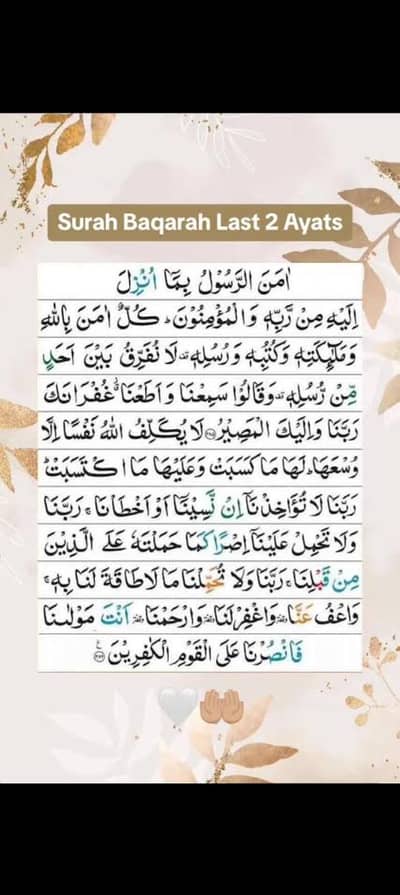 Surah Baqarah Last 2 Ayats
اٰمَنَ الرَّسُوْلُ بِمَاۤ اُنْزِلَ
اِلَيْهِ مِنْ رَّبِّهٖ وَالْمُؤْمِنُوْنَ ؕ كُلٌّ اٰمَنَ بِاللّٰهِ
وَمَلٰٓئِكَتِهٖ وَكُتُبِهٖ وَرُسُلِهٖ ۟ لَا نُفَرِّقُ بَيْنَ اَحَدٍ
مِّنْ رُّسُلِهٖ ۟ وَقَالُوْا سَمِعْنَا وَاَطَعْنَا ۗ غُفْرَانَكَ
رَبَّنَا وَاِلَيْكَ الْمَصِيْرُ ﴿۲۸۵﴾ لَا يُكَلِّفُ اللّٰهُ نَفْسًا اِلَّا
وُسْعَهَا ؕ لَهَا مَا كَسَبَتْ وَعَلَيْهَا مَا اكْتَسَبَتْ ؕ
رَبَّنَا لَا تُؤَاخِذْنَاۤ اِنْ نَّسِيْنَاۤ اَوْ اَخْطَاْنَا ۚ رَبَّنَا
وَلَا تَحْمِلْ عَلَيْنَاۤ اِصْرًا كَمَا حَمَلْتَهٗ عَلَى الَّذِيْنَ
مِنْ قَبْلِنَا ۚ رَبَّنَا وَلَا تُحَمِّلْنَا مَا لَا طَاقَةَ لَنَا بِهٖ ۚ
وَاعْفُ عَنَّا ۥ وَاغْفِرْ لَنَا ۥ وَارْحَمْنَا ۥ اَنْتَ مَوْلٰىنَا
فَانْصُرْنَا عَلَى الْقَوْمِ الْكٰفِرِيْنَ ﴿۲۸۶﴾